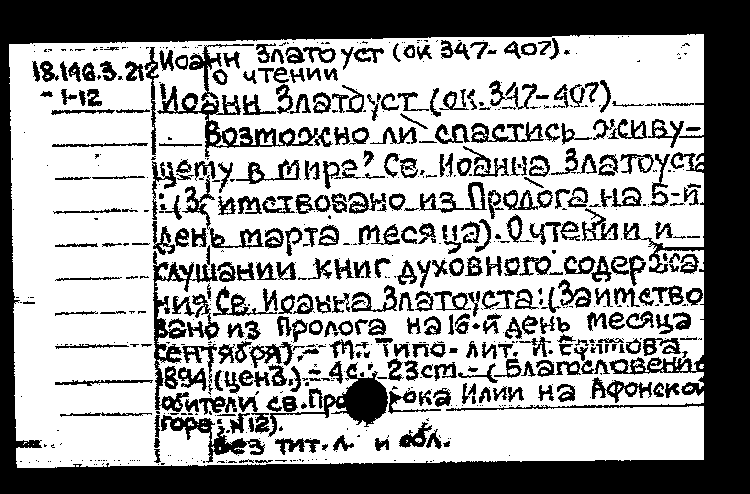 Иоанн Златоуст (ок 347-407).
18.146.3.212
О чтении
-1-12
Иоанн Златоуст (ок. 347-407)
Возможно ли спастись живу-
щему в мире? Св. Иоанна Златоуста
:(Заимствовано из Пролога на 5-й
день марта месяца). О чтении и
слушании книг духовного содержа
ния Св. Иоанна Златоуста:(Заимство
вано из Пролога на 16-й день месяца
сентября).- М.: Типо-лит. И. Ефимова,
1894 (ценз.).- 4с.; 23cm.- (Благословение
обители св. Пророка Илии на Афонской
горе; N12).
Без тит.л. и обл.